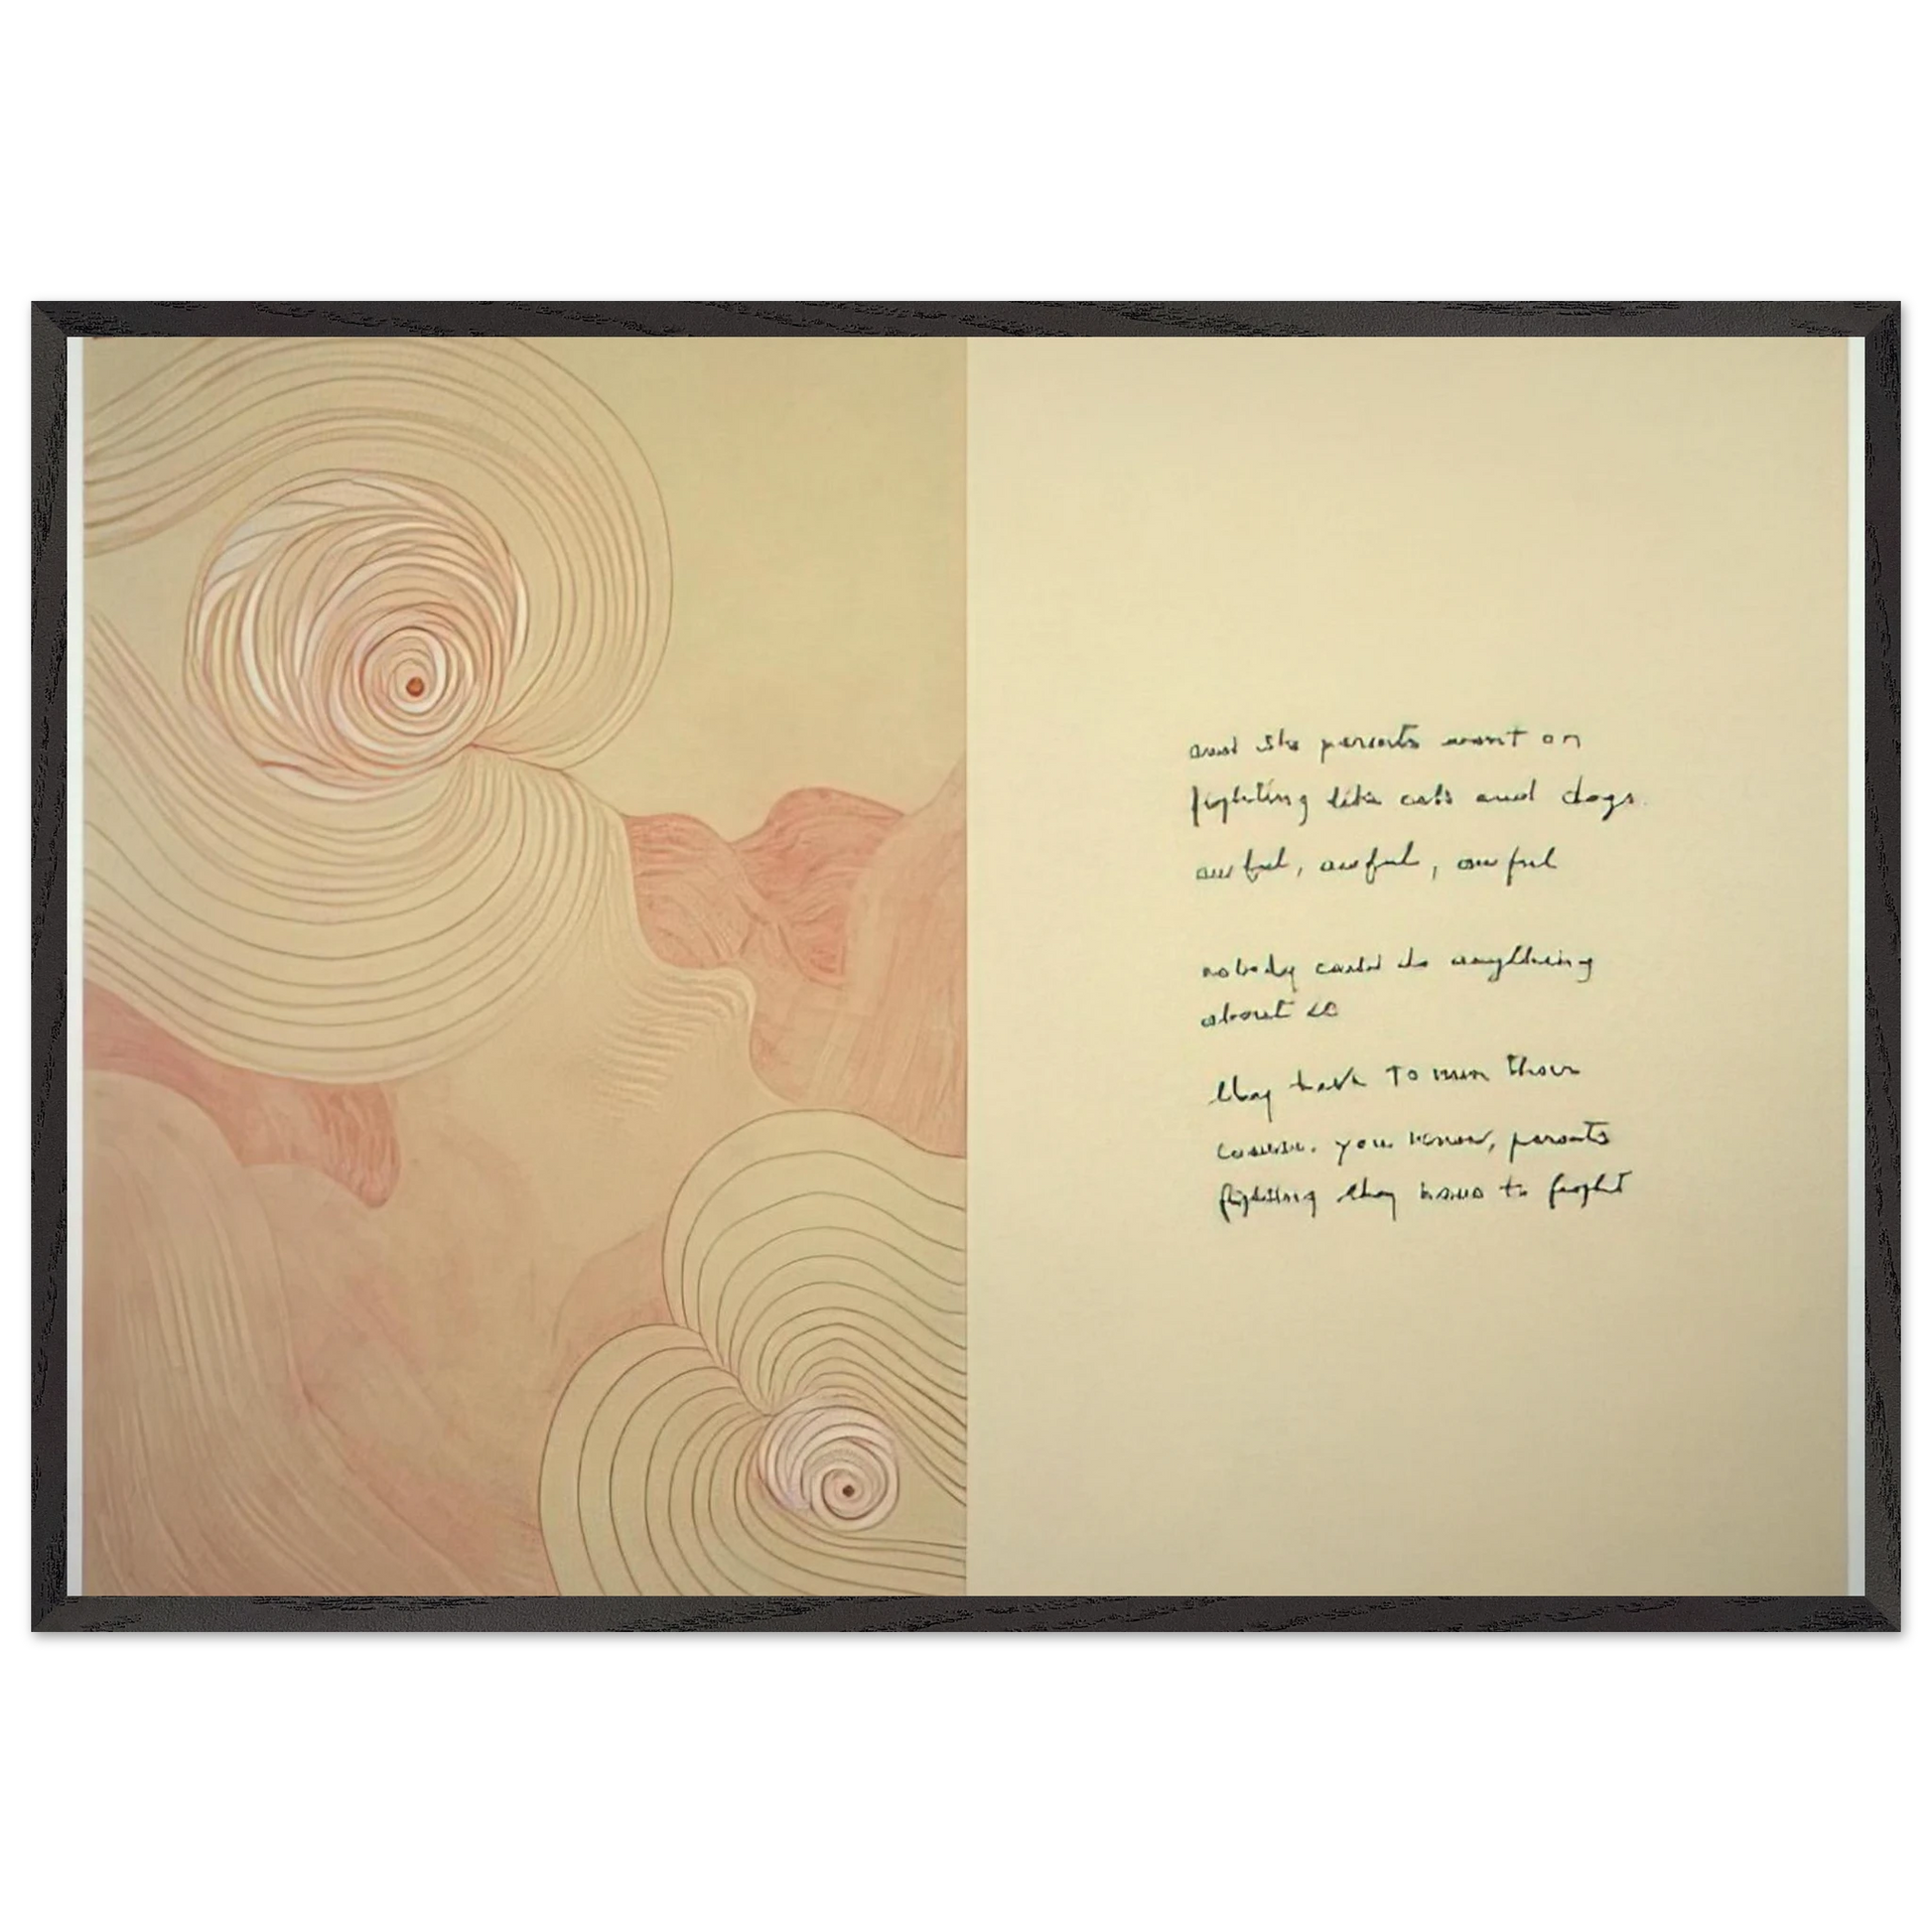 and the parents went on
fighting like cats and dogs.
awful, awful, awful
nobody could do anything
about it
they have to run their
course. you know, parents
fighting they have to fight